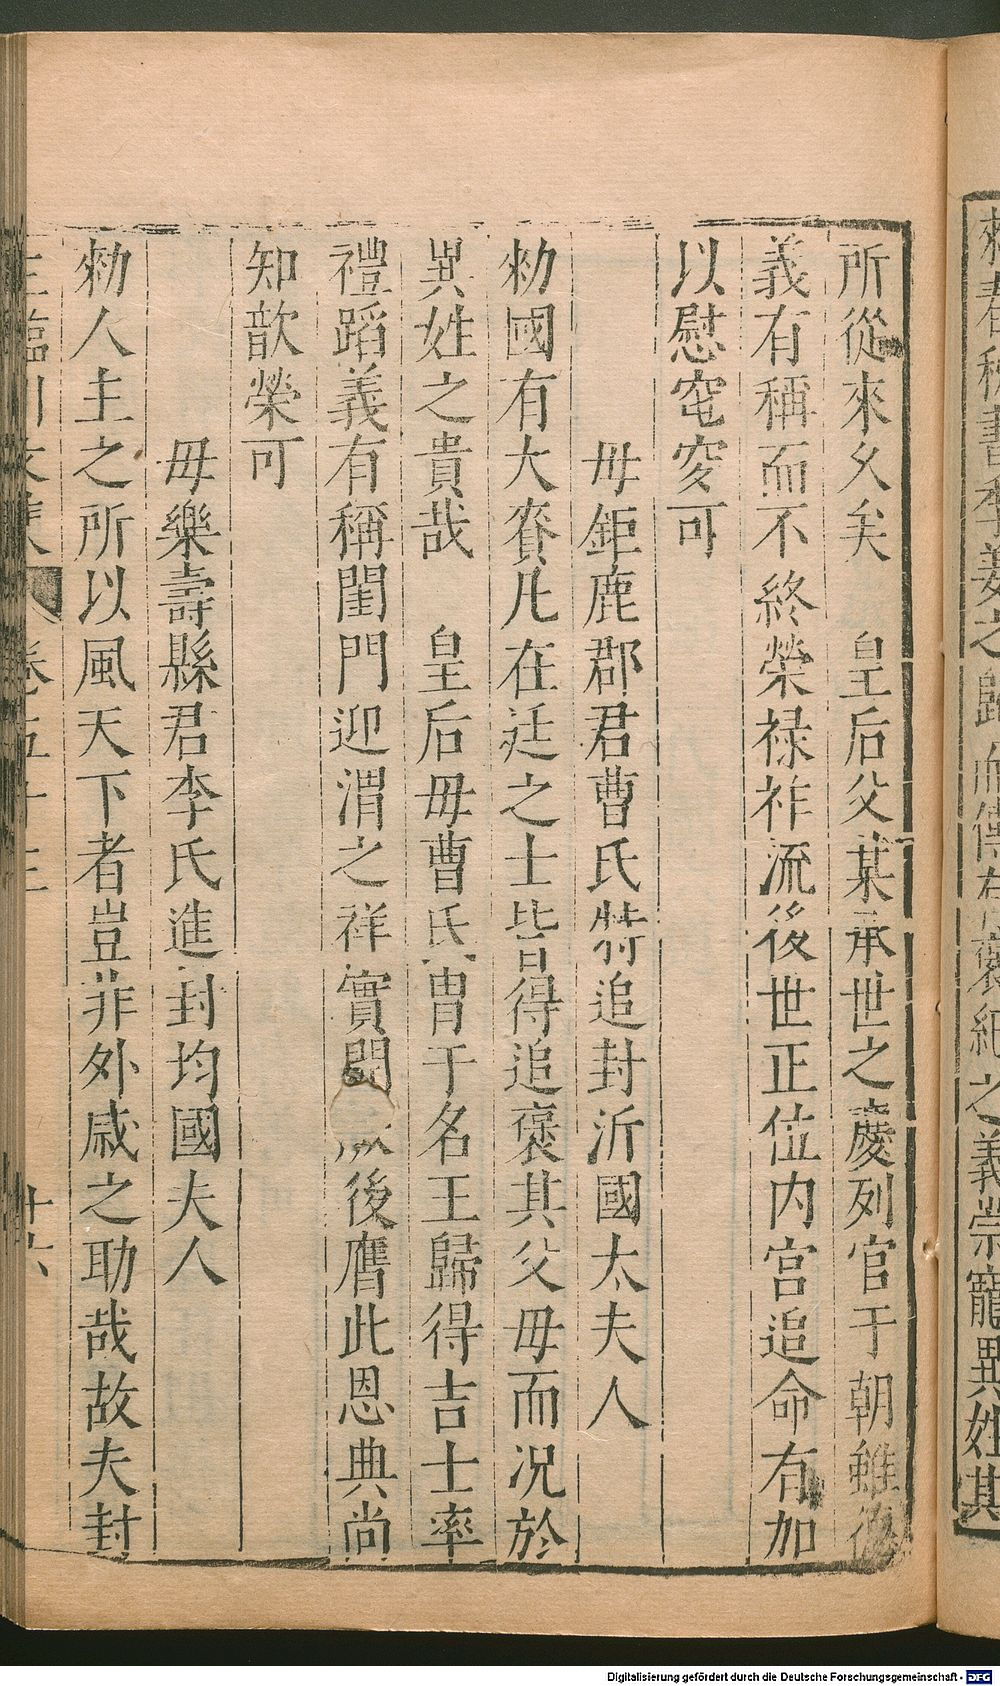 所從來久矣 皇后父某承世之慶列官于朝雖德
義有稱而不終榮祿祚流後世正位内宮追命有加
以慰窀穸可
母鉅鹿郡君曹氏特追封沂國太夫人
勑國有大賚凡在廷之士皆得追褒其父母而況於
異姓之貴哉 皇后母曹氏冑于名王歸得吉士率
禮蹈義有稱閨門迎渭之祥實開後膺此恩典尚
知歆榮可
母樂壽縣君李氏進封均國夫人
勑人主之所以風天下者豈非外戚之助哉故夫封
Digitalisierung gefördert durch die Deutsche Forschungsgemeinschaft - DFG